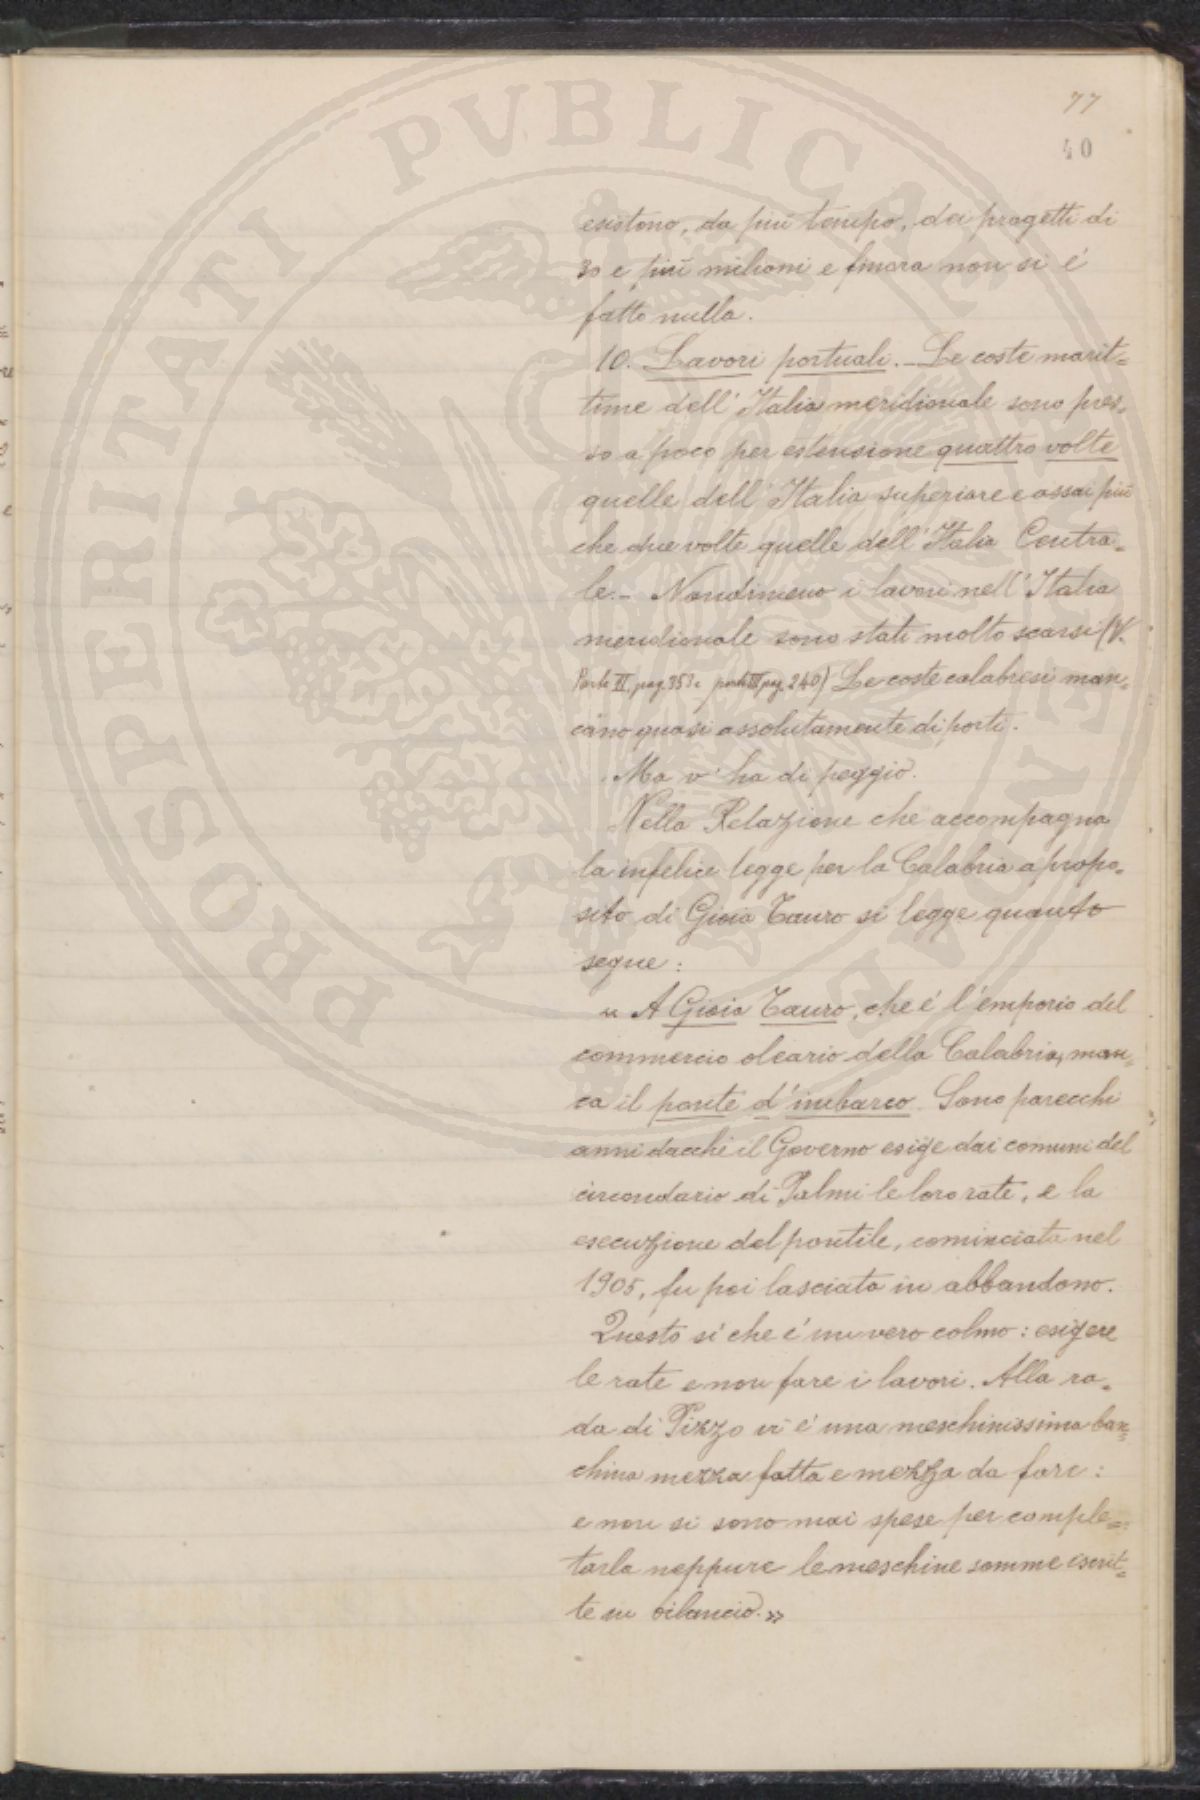 77
40
PROSPERITATI PVBLICAE
esistono, da più tempo, dei progetti di
30 e più milioni e finora non si é
fatto nulla.
10. Lavori portuali. - Le coste marit=
time dell'Italia meridionale sono pres=
so a poco per estensione quattro volte
quelle dell'Italia superiore e assai più
che due volte quelle dell'Italia Centra=
le. - Nondimeno i lavori nell'Italia
meridionale sono stati molto scarsi (V.
Parte II, pag. 353 e parte III pag. 240) Le coste calabresi man=
cano quasi assolutamente di porti.
Ma v'ha di peggio.
Nella Relazione che accompagna
la infelice legge per la Calabria a propo=
sito di Gioia Tauro si legge quanto
segue:
« A Gioia Tauro, che é l'emporio del
commercio oleario della Calabria, man=
ca il ponte d'imbarco. Sono parecchi
anni dacché il Governo esige dai comuni del
circondario di Palmi le loro rate, e la
esecuzione del pontile, cominciata nel
1905, fu poi lasciata in abbandono.
Questo sí che é un vero colmo: esigere
le rate e non fare i lavori. Alla ra=
da di Pizzo vi é una meschinissima ban=
china mezza fatta e mezza da fare:
e non si sono mai spese per comple=
tarla neppure le meschine somme escrit=
te in bilancio. »